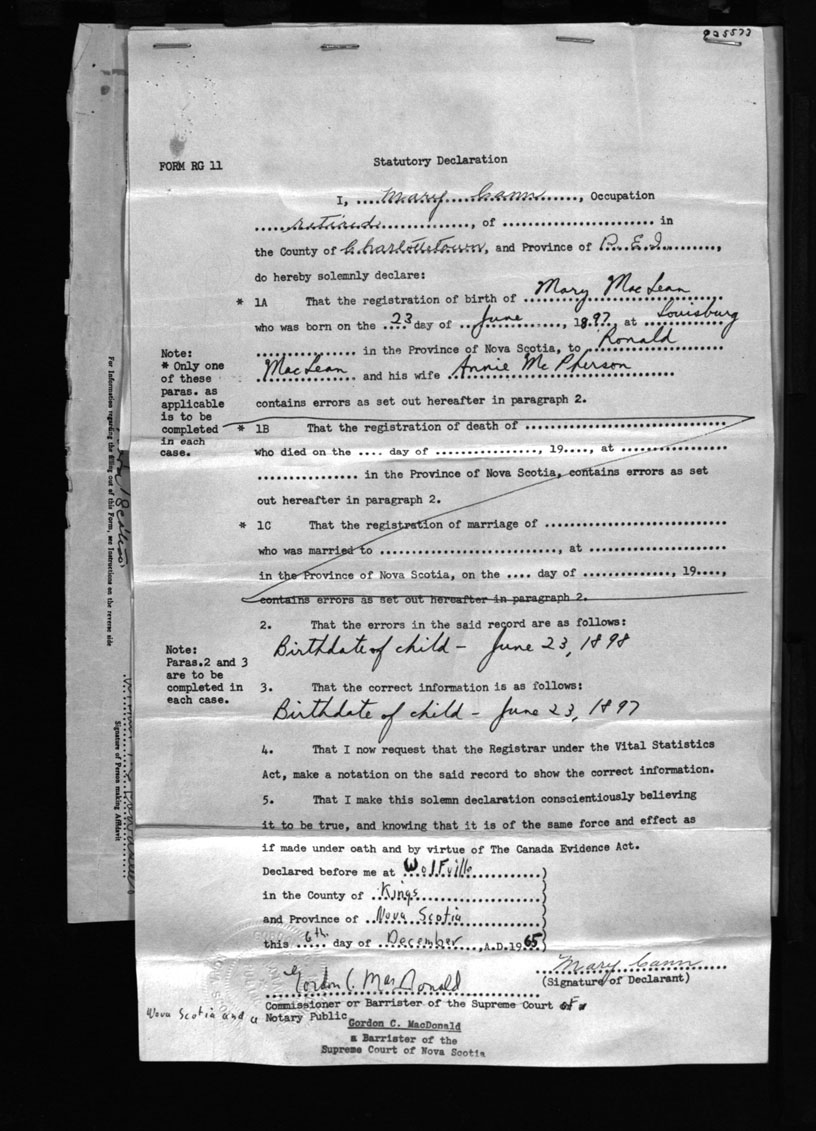 925573
FORM RG 11
Statutory Declaration
I, ....Mary.....Cann......, Occupation
.....retired................, of .......................... in
the County of Charlottetown, and Province of P.E.I.........,
do hereby solemnly declare:
* 1A That the registration of birth of Mary MacLean
who was born on the ..23..day of ...June..........., 1897., at ..Louisburg
................. in the Province of Nova Scotia, to ..Ronald
MacLean.......... and his wife .Annie McPherson..........
contains errors as set out hereafter in paragraph 2.
Note:
* Only one
of these
paras. as
applicable
is to be
completed
in each
case.
* 1B That the registration of death of ..................................
who died on the .... day of .................., 19...., at ..................
................. in the Province of Nova Scotia, contains errors as set
out hereafter in paragraph 2.
* 1C That the registration of marriage of ...............................
who was married to ..............................., at .......................
in the Province of Nova Scotia, on the .... day of ..............., 19....,
contains errors as set out hereafter in paragraph 2.
2. That the errors in the said record are as follows:
Birthdate of child - June 23, 1898
Note:
Paras.2 and 3
are to be
completed in
each case.
3. That the correct information is as follows:
Birthdate of child - June 23, 1897
4. That I now request that the Registrar under the Vital Statistics
Act, make a notation on the said record to show the correct information.
5. That I make this solemn declaration conscientiously believing
it to be true, and knowing that it is of the same force and effect as
if made under oath and by virtue of The Canada Evidence Act.
Declared before me at Wolfville............)
in the County of ..Kings...................)
and Province of ..Nova Scotia..............)
this ..6th.. day of .December..,A.D.1965)
Gordon C. MacDonald
Mary Cann
(Signature of Declarant)
Commissioner or Barrister of the Supreme Court of
Nova Scotia and a Notary Public
Gordon C. MacDonald
a Barrister of the
Supreme Court of Nova Scotia
For Information regarding the filling out of this Form, see Instructions on the reverse side
Signature of Person making Affidavit